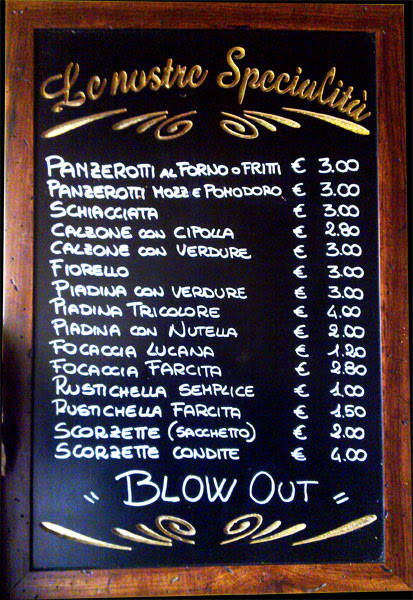 Le nostre Specialità
PANZEROTTI AL FORNO O FRITTI € 3.00
PANZEROTTI MOZZ E POMODORO € 3.00
SCHIACCIATA € 3.00
CALZONE CON CIPOLLA € 2.80
CALZONE CON VERDURE € 3.00
FIORELLO € 3.00
PIADINA CON VERDURE € 3.00
PIADINA TRICOLORE € 4.00
PIADINA CON NUTELLA € 2.00
FOCACCIA LUCANA € 1.20
FOCACCIA FARCITA € 2.80
RUSTICHELLA SEMPLICE € 1.00
RUSTICHELLA FARCITA € 1.50
SCORZETTE (SACCHETTO) € 2.00
SCORZETTE CONDITE € 4.00
"BLOW OUT"